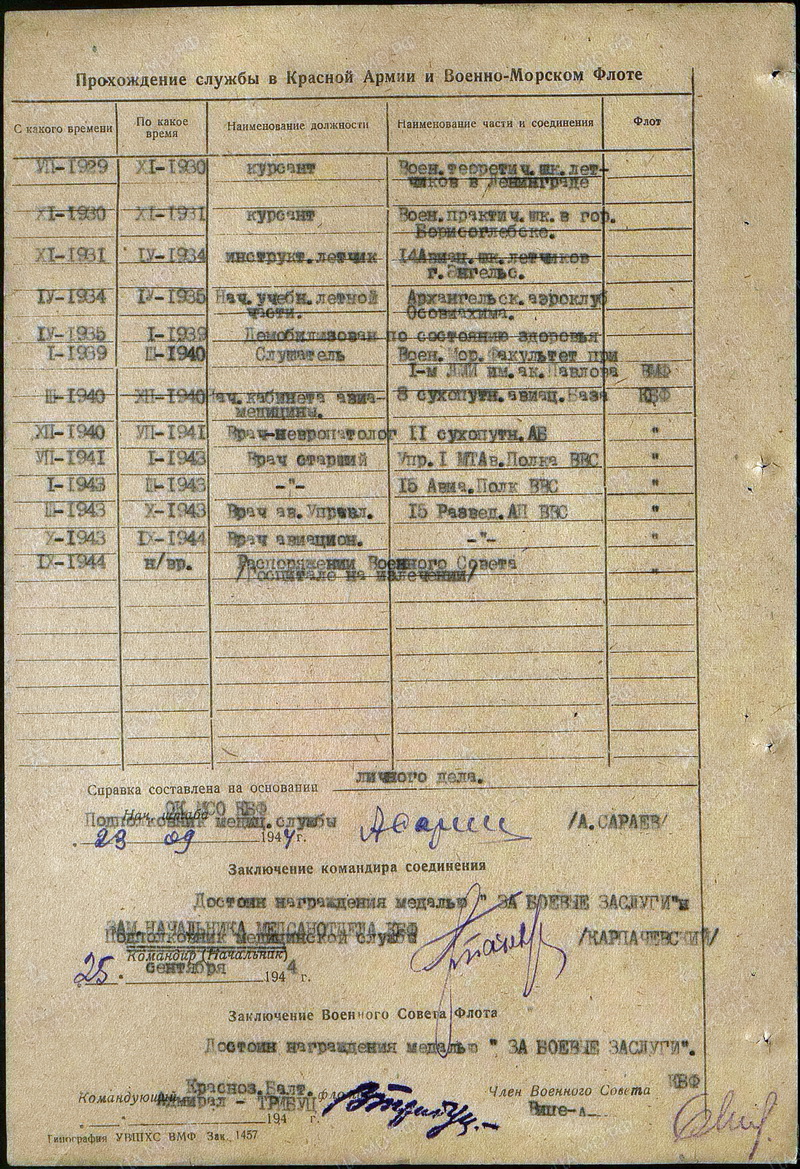 Прохождение службы в Красной Армии и Военно-Морском Флоте
С какого времени По какое время Наименование должности Наименование части и соединения Флот
VII-1929 XI-1930 курсант Воен.теоретич.шк.лет-
чиков в Ленинграде
XI-1930 XI-1931 курсант Воен.практич.шк.в гор.
Борисоглебске.
XI-1931 IV-1934 инструкт.летчик 14Авиац.шк.летчиков
г.Энгельс.
IV-1934 IV-1935 Нач.учебн.летной Архангельск.аэроклуб
части. Осоавиахима.
IV-1935 I-1939 Демобилизован по состоянию здоровья
I-1939 III-1940 Слушатель Воен.Мор.Факультет при
I-м ЛМИ им.ак.Павлова ВМФ
III-1940 XII-1940 Нач.кабинета авиа- 8 сухопутн.авиац.База КБФ
медицины.
XII-1940 VII-1941 Врач-невропатолог II сухопутн.АБ "
VII-1941 I-1943 Врач старший Упр.I МТАв.Полка ВВС "
I-1943 III-1943 -"- 15 Авиа.Полк ВВС "
III-1943 X-1943 Врач ав.Управл. 15 Развед.АП ВВС "
X-1943 IX-1944 Врач авиацион. -"- "
IX-1944 н/вр. Распоряжении Военного Совета "
/Госпитале на излечении/
Справка составлена на основании личного дела.
ОК МСО КБФ
Нач. штаба
Подполковник медиц.службы /А.САРАЕВ/
23 09 1944 г.
Заключение командира соединения
Достоин награждения медалью " ЗА БОЕВЫЕ ЗАСЛУГИ"
ЗАМ.НАЧАЛЬНИКА МЕДСАНОТДЕЛА КБФ
Подполковник медицинской службы /КАРПАЧЕВСКИЙ/
Командир (Начальник)
25. сентября 1944 г.
Заключение Военного Совета Флота
Достоин награждения медалью " ЗА БОЕВЫЕ ЗАСЛУГИ".
Командующий Красноз.Балт. флотом Член Военного Совета КБФ
Адмирал - ТРИБУЦ Вице-а
194 г.
Типография УВШХС ВМФ Зак. 1457